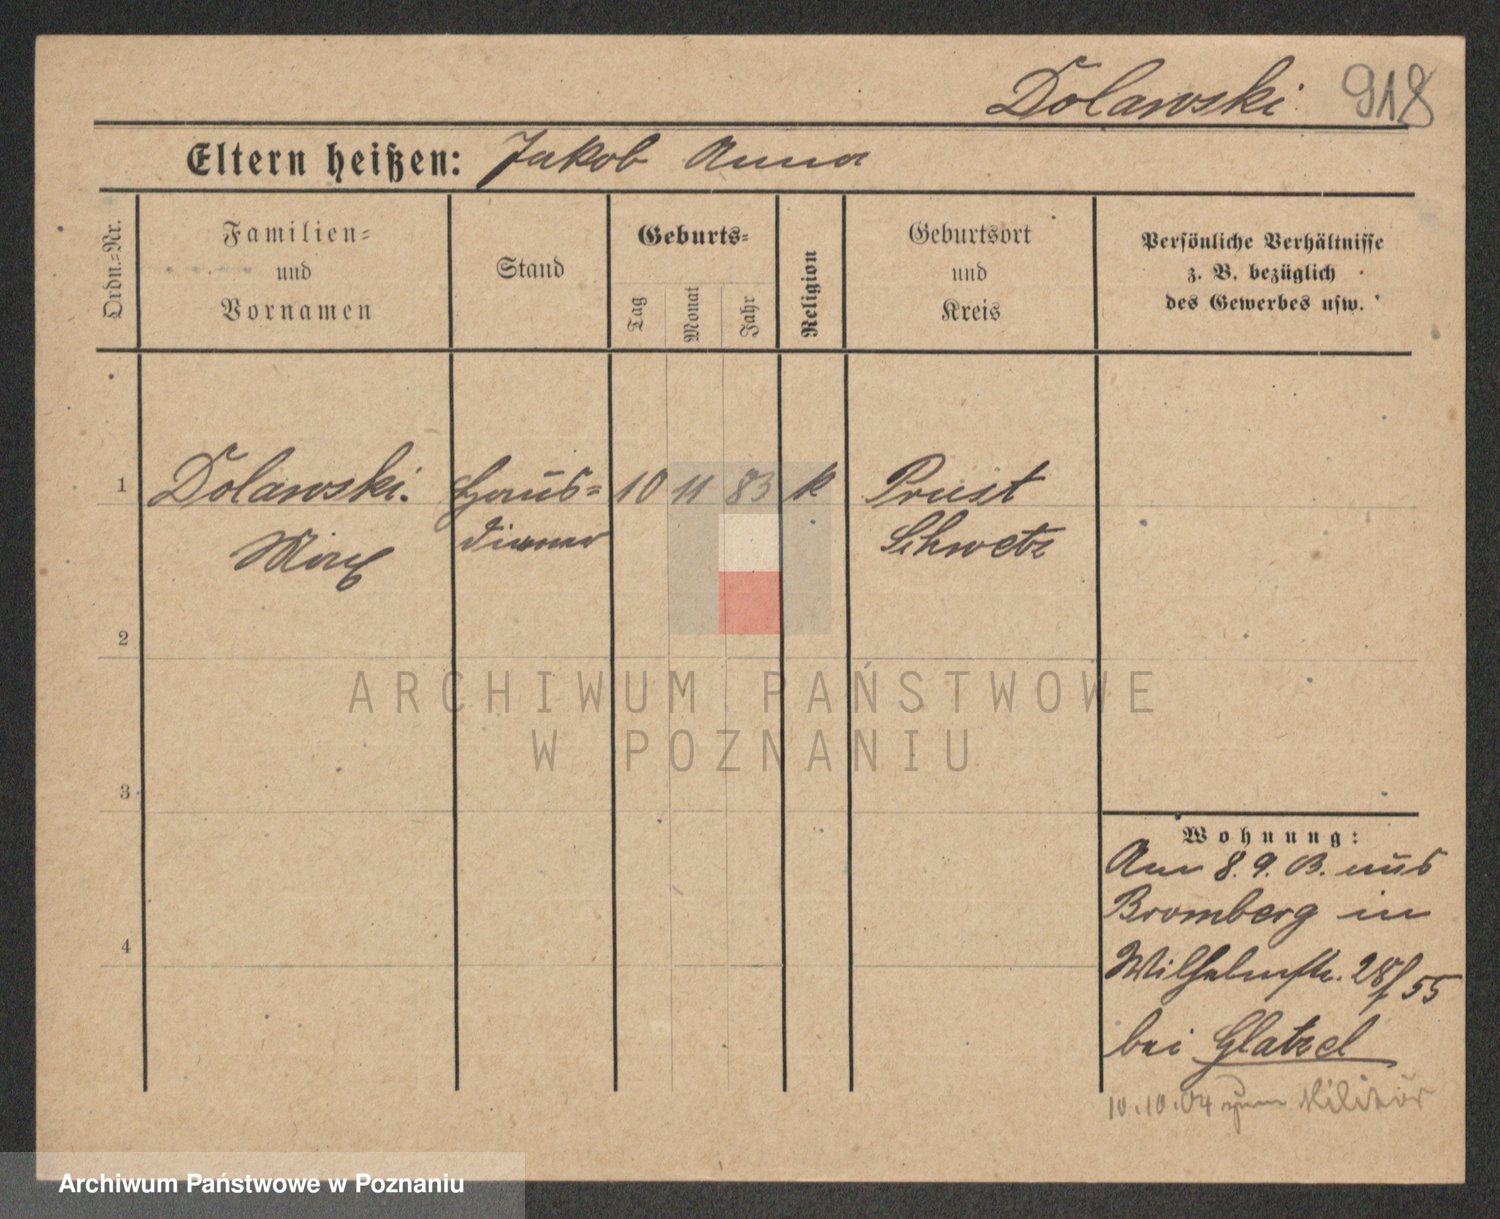 Dolawski 918
Eltern heißen: Jakob Anna
Ordn.-Nr.
Familien-
und
Vornamen
Stand
Geburts-
Tag
Monat
Jahr
Religion
Geburtsort
und
Kreis
Persönliche Verhältnisse
z. B. bezüglich
des Gewerbes usw.
1 Dolawski. Haus- 10 11 83 k Prust
diener Schwetz
2
ARCHIWUM PAŃSTWOWE
W POZNANIU
3
4
Wohnung:
Am 8. 9. 03. aus
Bromberg in
Wilhelmstr.
bei Glatzel
10.10.04 zum Militär
Archiwum Państwowe w Poznaniu